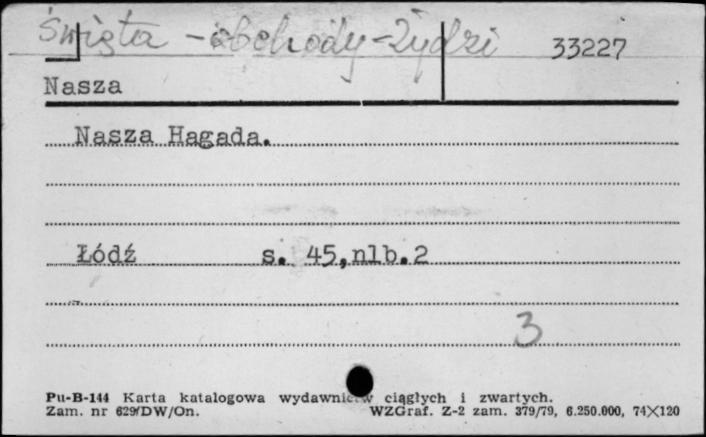 Święta - obchody - Żydzi 33227
Nasza
Nasza Hagada.
Łódź s. 45,nlb.2
3
Pu-B-144 Karta katalogowa wydawnictw ciągłych i zwartych.
Zam. nr 629/DW/On. WZGraf. Z-2 zam. 379/79, 6.250.000, 74×120